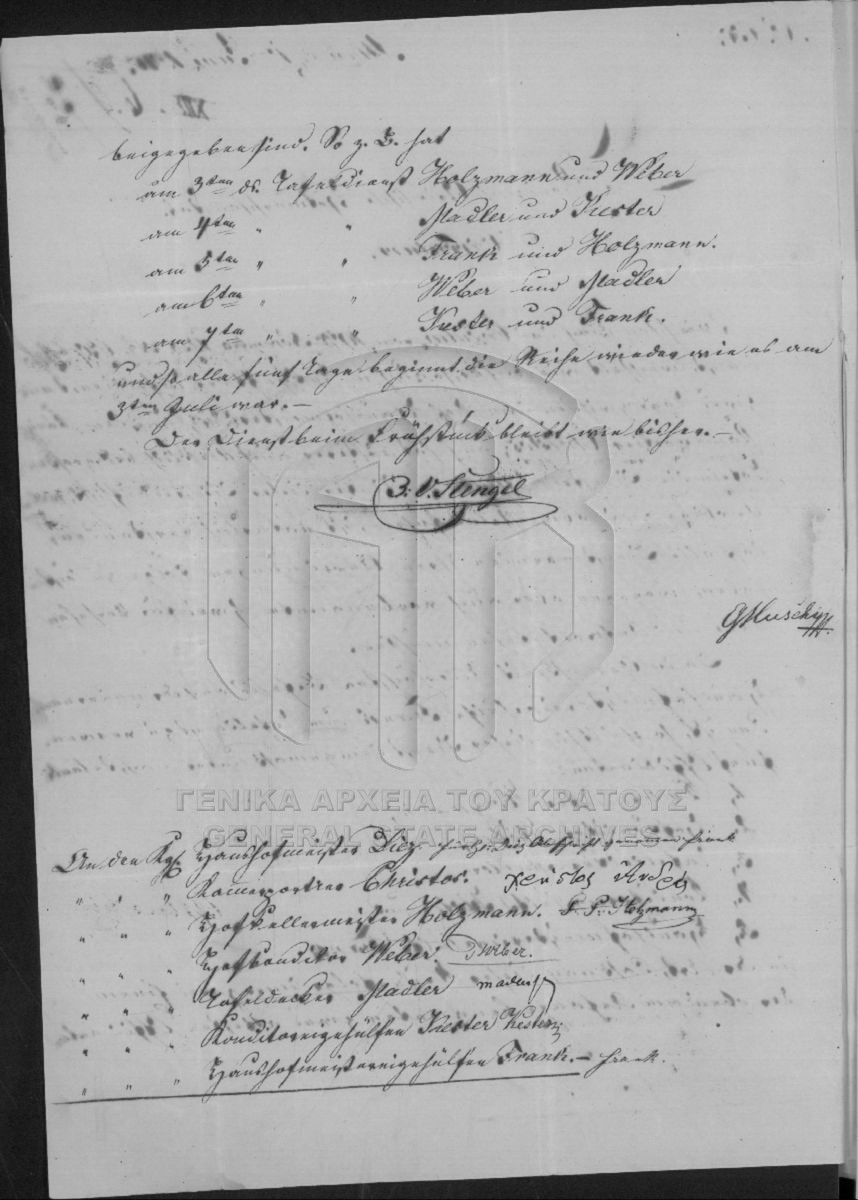 beigegeben sind. So z. B. hat
am 3ten ds. Tafeldienst Holzmann und Weber
am 4ten " " Madler und Kester
am 5ten " " Frank und Holzmann.
am 6ten " " Weber und Madler
am 7ten " " Kester und Frank.
und so alle fünf Tage beginnt die Reihe wieder wie es am
3ten Juli war. —
Der Dienst beim Frühstück bleibt wie bisher. —
B. v. Stengel
ΓΕΝΙΚΑ ΑΡΧΕΙΑ ΤΟΥ ΚΡΑΤΟΥΣ
GENERAL STATE ARCHIVES
An den Kgl. Haushofmeister Diez Abschrift genommen
" " " Kammerportier Christos. χρίστος
" " " Hofkellermeister Holzmann. Holzmann
" " " Hofkonditor Weber. Weber.
" " " Tafeldecker Madler Mader
" " " Konditoreigehülfen Kester Kester
" " " Haushofmeistereigehülfen Frank. — Frank.